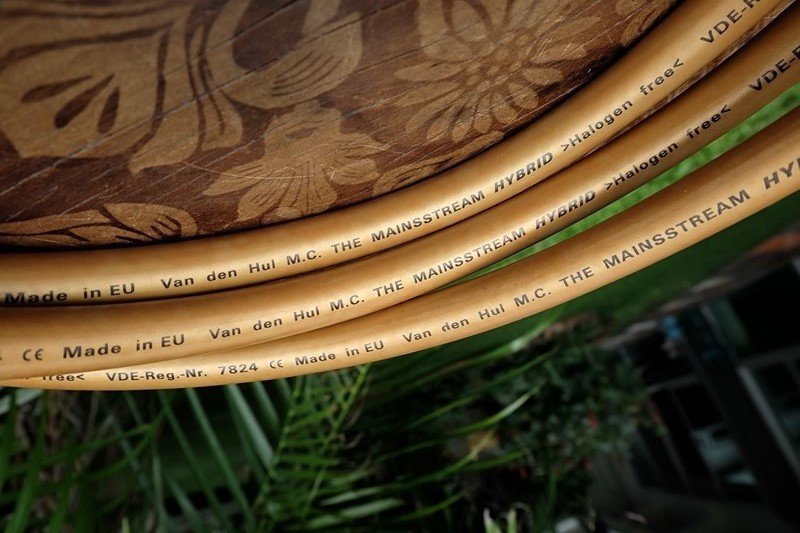 Made in EU Van den Hul M.C. THE MAINSSTREAM HYBRID >Halogen free< VDE-R
CE Made in EU Van den Hul M.C. THE MAINSSTREAM HYBRID >Halogen free< VDE-R
free< VDE-Reg.-Nr. 7824 CE Made in EU Van den Hul M.C. THE MAINSSTREAM HY